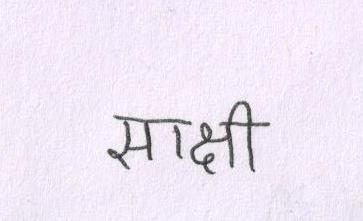 साक्षी